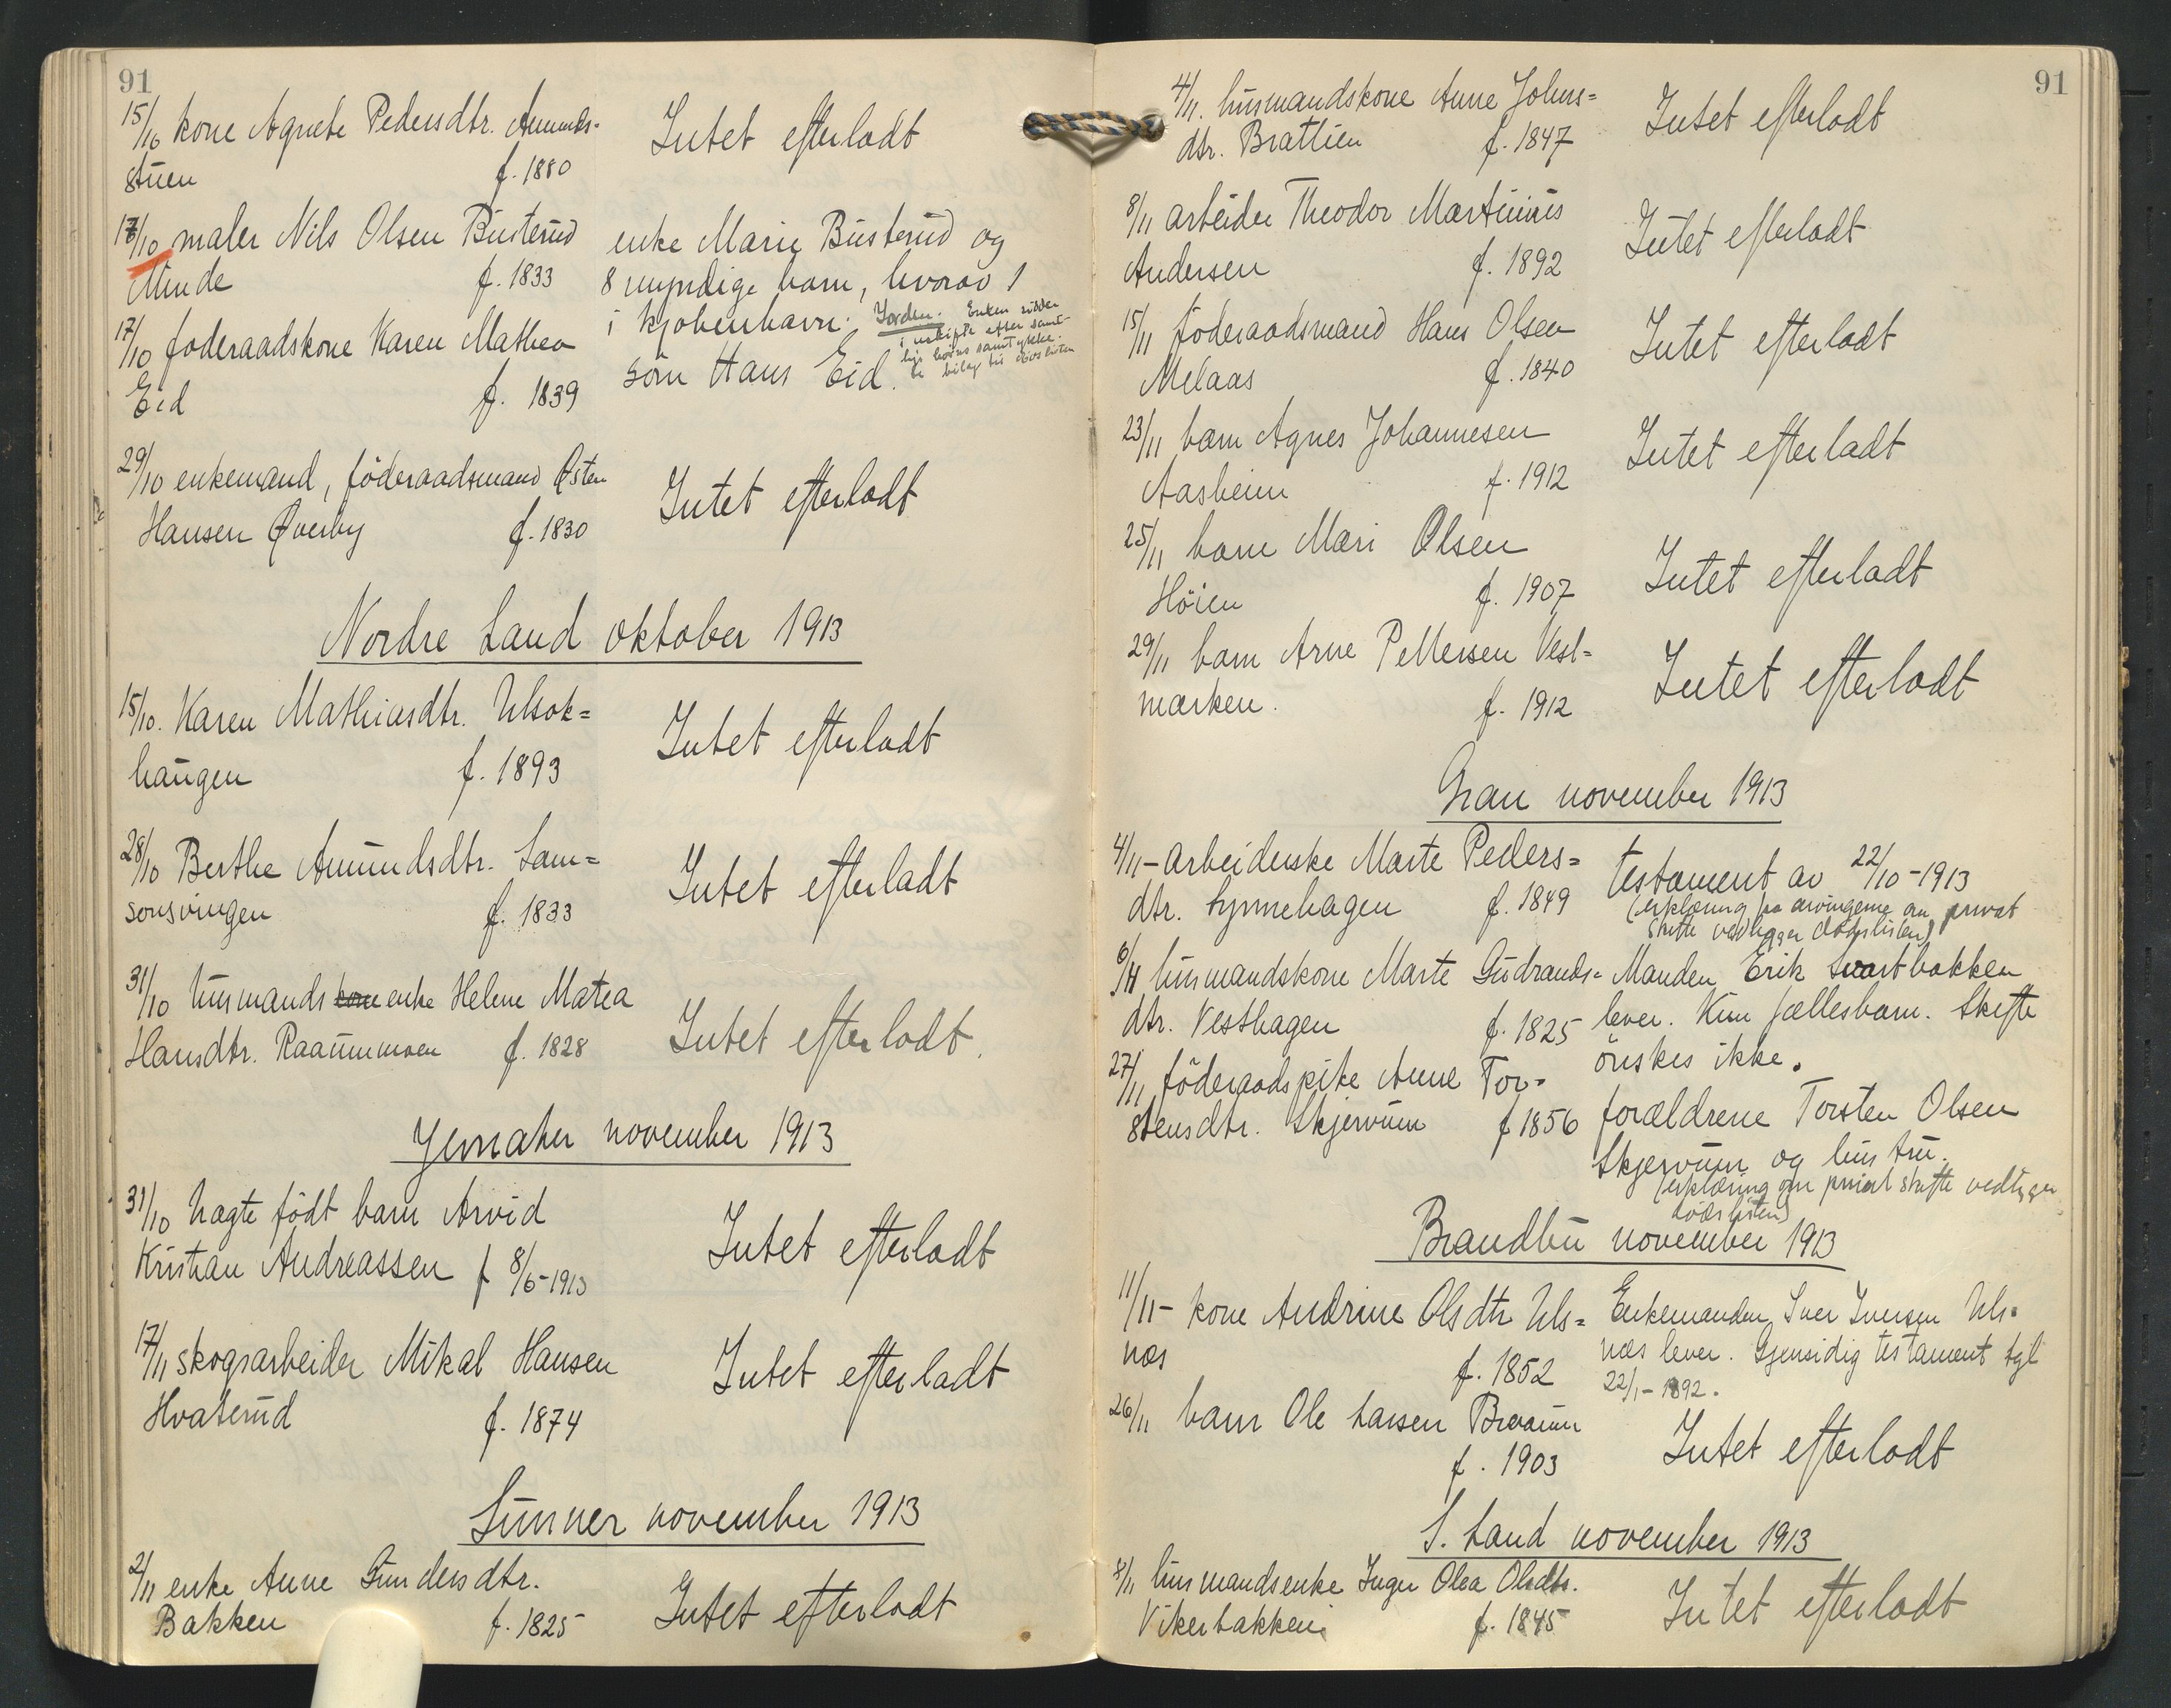 91
15/10 kone Agnete Pedersdtr. Amunds-
stuen f. 1880
Intet efterladt
17/10 maler Nils Olsen Busterud
Minde f. 1833
enke Marie Busterud og
8 umyndige barn, hvorav 1
i Kjøbenhavn. Jorden. Enken sidder
i uskifte efter samt-
lige barns samtykke.
17/10 føderaadskone Karen Mathea
Eid f. 1839
søn Hans Eid.
29/10 enkemand, føderaadsmand Østen
Hansen Øverby f. 1830
Intet efterladt
Nordre Land oktober 1913
15/10. Karen Mathiasdtr. Ulsok=
haugen f. 1893
Intet efterladt
28/10 Berthe Amundsdtr. Lam=
sonsvingen f. 1833
Intet efterladt
31/10 husmands kone enke Helene Matea
Hansdtr. Raaummoen f. 1828
Intet efterladt.
Jevnaker november 1913
31/10 uægte født barn Arvid
Kristian Andreassen f 8/6-1913
Intet efterladt
17/11 skogsarbeider Mikal Hansen
Hvaterud f. 1874
Intet efterladt
Lunner november 1913
2/11 enke Anne Gundersdtr.
Bakken f. 1825
Intet efterladt
91
4/11. husmandskone Anne Johns=
dtr. Brattlien f. 1847
Intet efterladt
8/11 arbeider Theodor Martinius
Andersen f. 1892
Intet efterladt
15/11 føderaadsmand Hans Olsen
Melaas f. 1840
Intet efterladt
23/11 barn Agnes Johannesen
Aasheim f. 1912
Intet efterladt
25/11 barn Mari Olsen
Høien f. 1907
Intet efterladt
29/11 barn Arne Pettersen Vest=
marken. f. 1912
Intet efterladt
Gran november 1913
4/11 - arbeiderske Marte Peders=
dtr. Lynnehagen f. 1849
testament av 22/10-1913
(erklæring fra arvingerne om privat
skifte vedligger dødslisten)
6/11 husmandskone Marte Gudrands=
dtr. Vesthagen f. 1825
Manden Erik Svartbakken
lever. Kun fællesbarn. Skifte
ønskes ikke.
27/11 føderaadspike Anne Tor-
stensdtr. Skjervum f 1856
forældrene Torsten Olsen
Skjervum og hustru.
(erklæring om privat skifte vedligger
dødslisten)
Brandbu november 1913
11/11 - kone Andrine Olsdtr Uls=
næs f. 1852
Enkemanden Iver Iversen Uls=
næs lever. Gjensidig testament tgl
22/1 - 1892.
26/11 barn Ole Larsen
f. 1903
Intet efterladt
S. Land november 1913
8/11 husmandsenke Inger Olea Olsdtr.
Vikerbakken f. 1845
Intet efterladt